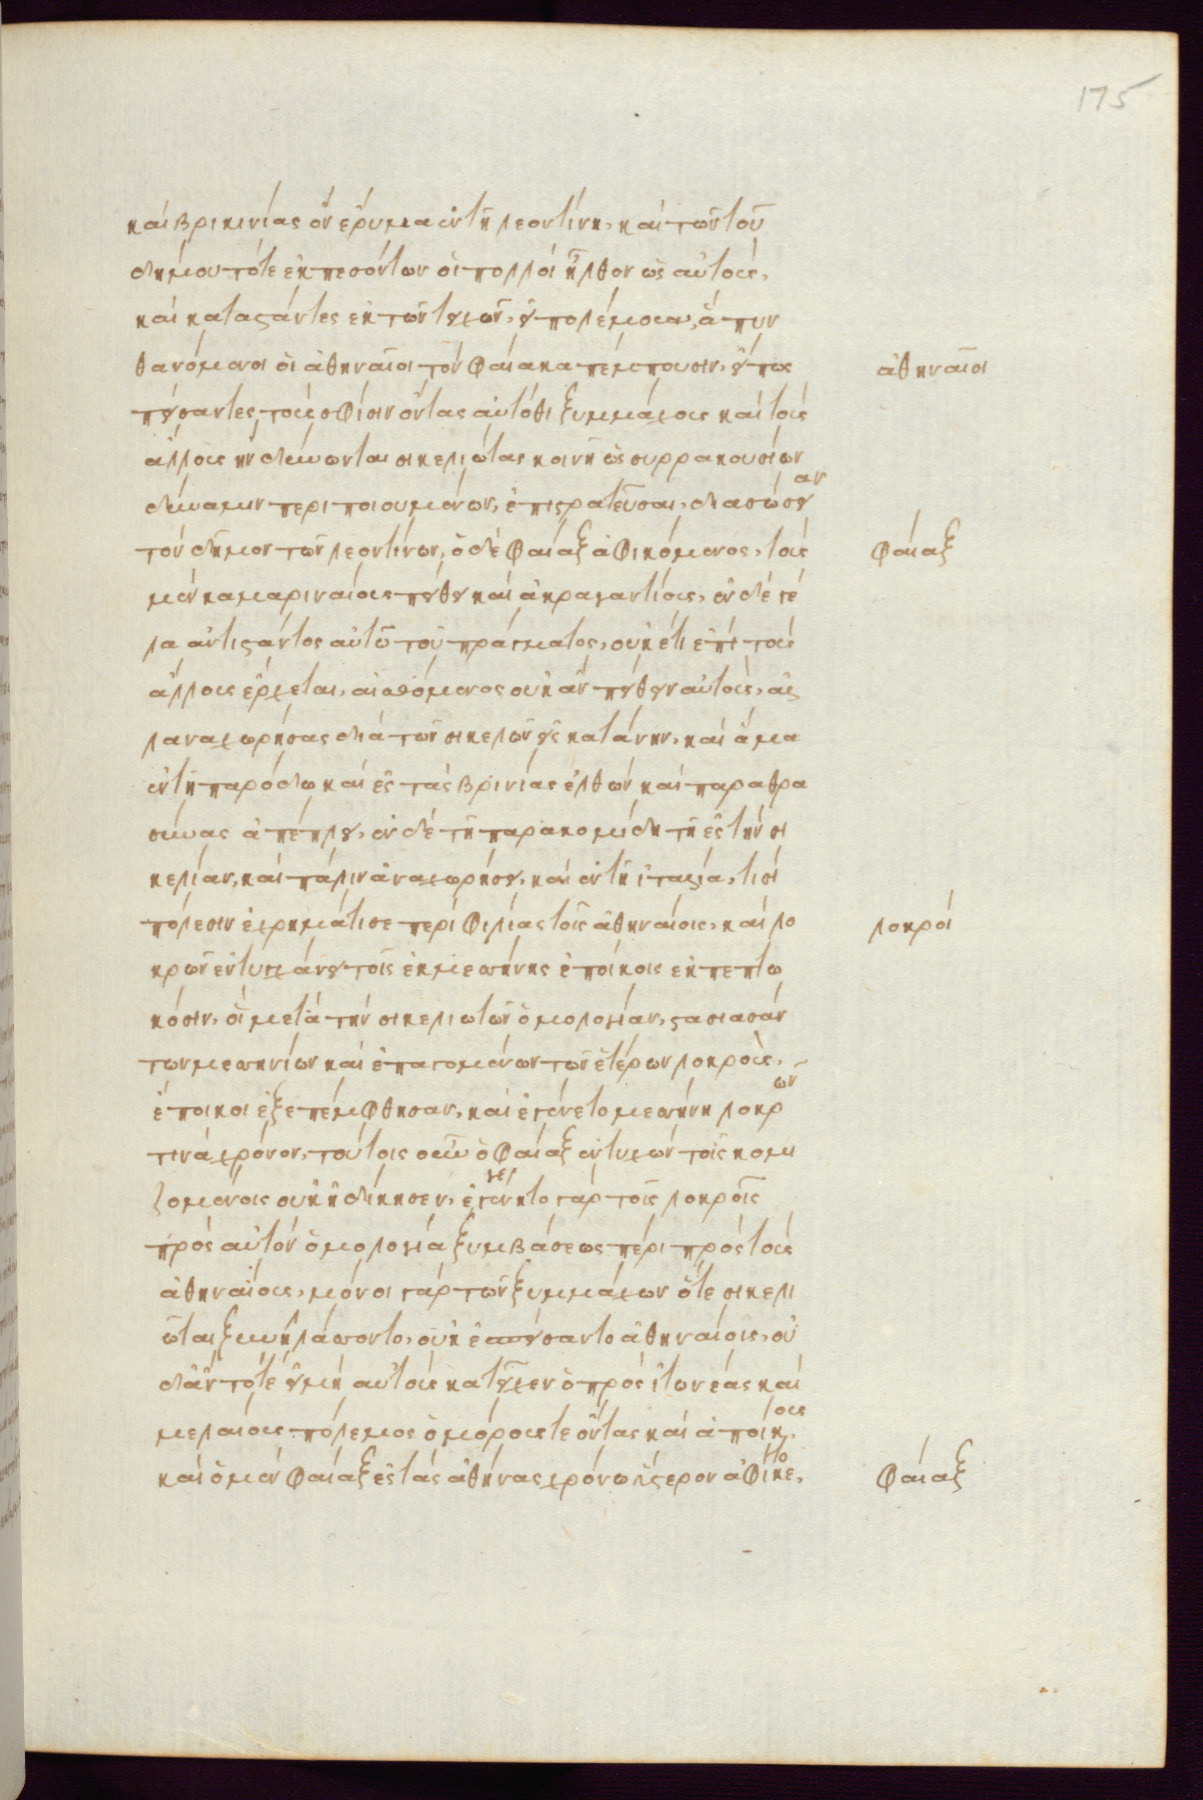 175
καὶ βρικινίας ὂν ἔρυμα ἐν τῆ λεοντίνη, καὶ τῶν τοῦ
δήμου τότε ἐκπεσόντων οἱ πολλοὶ ἦλθον ὡς αὐτούς,
καὶ καταστάντες ἐκ τῶν τειχῶν, ἐπολέμουν, ἃ πυν
θανόμενοι οἱ ἀθηναῖοι τὸν φαίακα πέμπουσιν, εἴπως
ἀθηναῖοι
πείσαντες τοὺς σφίσιν ὄντας αὐτόθι ξυμμάχους καὶ τοὺς
ἄλλους ἢν δύνωνται σικελιώτας κοινῆ ὡς συρρακουσίων
δύναμιν περιποιουμένων, ἐπιστρατεῦσαι, διασώσειαν
τὸν δῆμον τῶν λεοντίνων, ὁ δὲ φαίαξ ἀφικόμενος, τοὺς
φαίαξ
μὲν καμαριναίους πείθει καὶ ἀκραγαντίους, ἐν δὲ γέ
λα ἀντιστάντος αὐτῶ τοῦ πράγματος, οὐκέτι ἐπὶ τοὺς
ἄλλους ἔρχεται, αἰσθόμενος οὐκ ἂν πείθειν αὐτούς, ἀλ
λ' ἀναχωρήσας διὰ τῶν σικελῶν ἐς κατάνην, καὶ ἅμα
ἐν τῆ παρόδω καὶ ἐς τὰς βρινίας ἐλθὼν καὶ παραθρα
σύνας ἀπέπλει, ἐν δὲ τῆ παρακομιδῆ τῆ ἐς τὴν σι
κελίαν, καὶ πάλιν ἀναχωρήσει, καὶ ἐν τῆ ἰταλία, τισὶ
πόλεσιν ἐχρημάτισε περὶ φιλίας τοῖς ἀθηναίοις, καὶ λο
λοκροί
κρῶν ἐντυγχάνει τοῖς ἐκ μεσσήνης ἐποίκοις ἐκπεπτω
κόσιν, οἳ μετὰ τὴν σικελιωτῶν ὁμολογίαν, στασιασάν
των μεσσηνίων καὶ ἐπαγομένων τῶν ἑτέρων λοκρούς,
ἔποικοι ἐξεπέμφθησαν, καὶ ἐγένετο μεσσήνη λοκρῶν
τινὰ χρόνον, τούτοις οὖν ὁ φαίαξ ἐντυχὼν τοῖς κομι
ζομένοις οὐκ ἠδίκησεν, ἐγεγένητο γὰρ τοῖς λοκροῖς
πρὸς αὐτὸν ὁμολογία ξυμβάσεως πέρι πρὸς τοὺς
ἀθηναίους, μόνοι γὰρ τῶν ξυμμάχων ὅτε σικελι
ῶται ξυνηλάσσοντο, οὐκ ἐσπείσαντο ἀθηναίοις, οὐ
δ' ἂν τότε εἰ μὴ αὐτοὺς κατεῖχεν ὁ πρὸς ἰτωνέας καὶ
μελαίους πόλεμος ὁμόρους τε ὄντας καὶ ἀποίκους,
καὶ ὁ μὲν φαίαξ ἐς τὰς ἀθήνας χρόνω ὕστερον ἀφίκετο,
φαίαξ